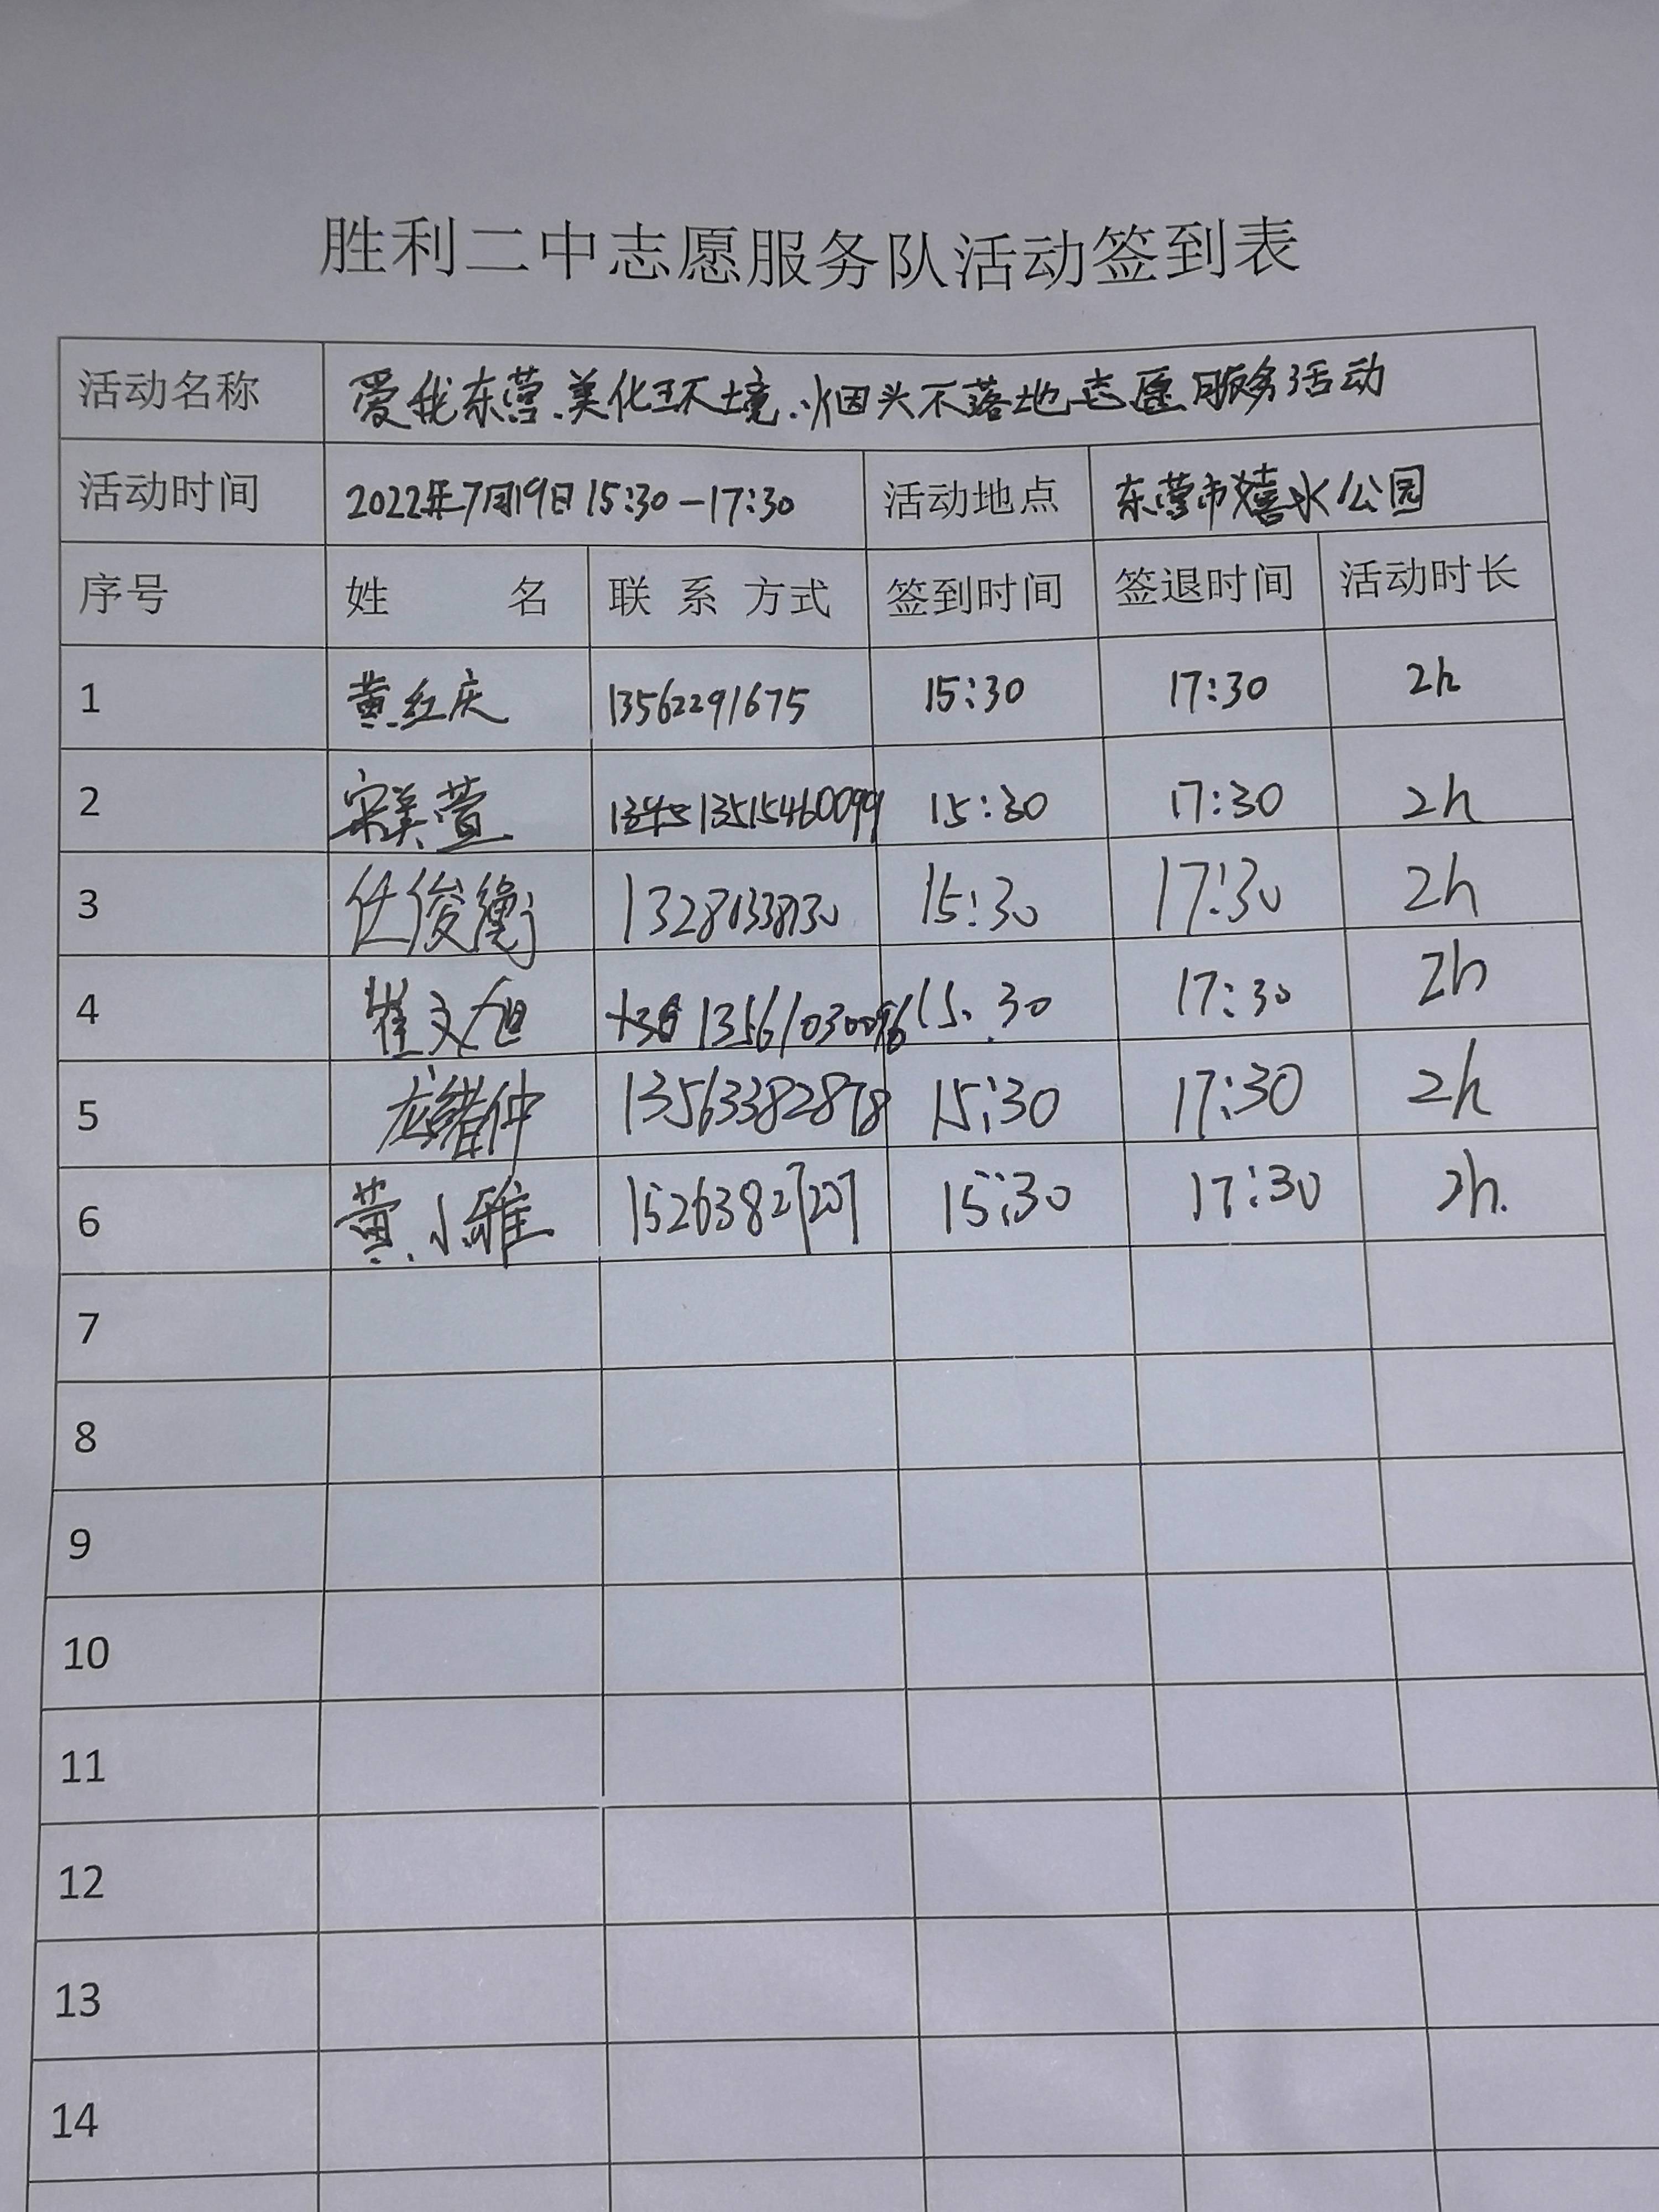 胜利二中志愿服务队活动签到表
活动名称 爱我东营.美化环境.烟头不落地志愿服务活动
活动时间 2022年7月19日15:30-17:30 活动地点 东营市嬉水公园
序号 姓 名 联 系 方式 签到时间 签退时间 活动时长
1 黄红庆 13562291675 15:30 17:30 2h
2 宋美萱 13515460099 15:30 17:30 2h
3 任俊衡 15:30 17:30 2h
4 崔文旭 13561030096 15:30 17:30 2h
5 13563382878 15:30 17:30 2h
6 黄小雅 15263827207 15:30 17:30 2h.
7
8
9
10
11
12
13
14